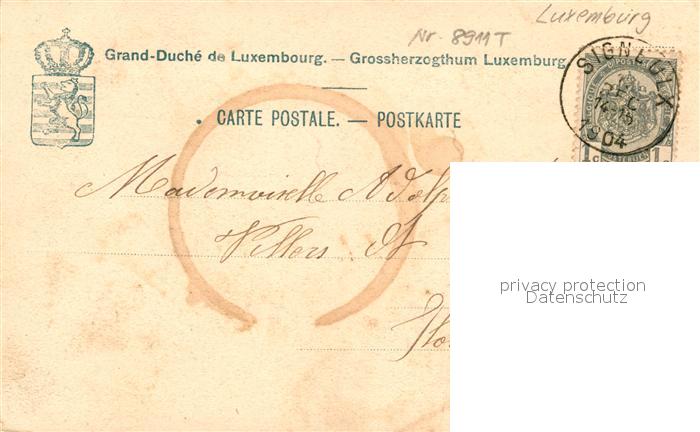 Luxemburg
Nr. 8911T
Grand-Duché de Luxembourg. — Grossherzogthum Luxemburg
CARTE POSTALE. — POSTKARTE
SIGNEULX
14-15
1904
Mademoiselle Adolp
Villers St
privacy protection
Datenschutz